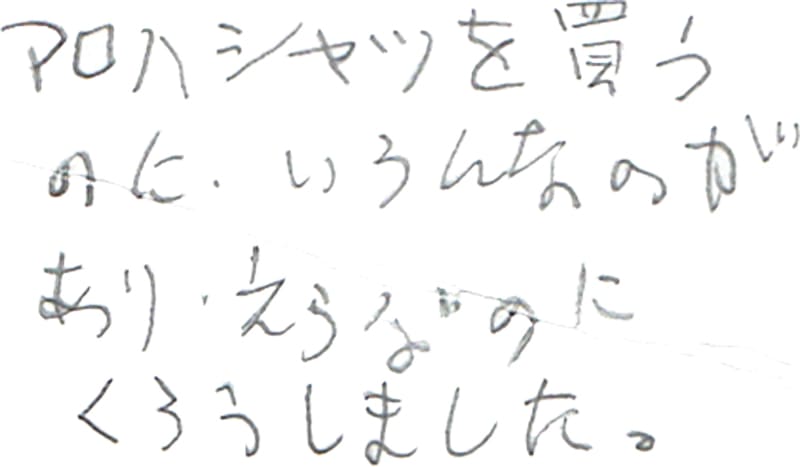 アロハシャツを買う
のに、いろんなのが
あり、えらぶのに
くろうしました。